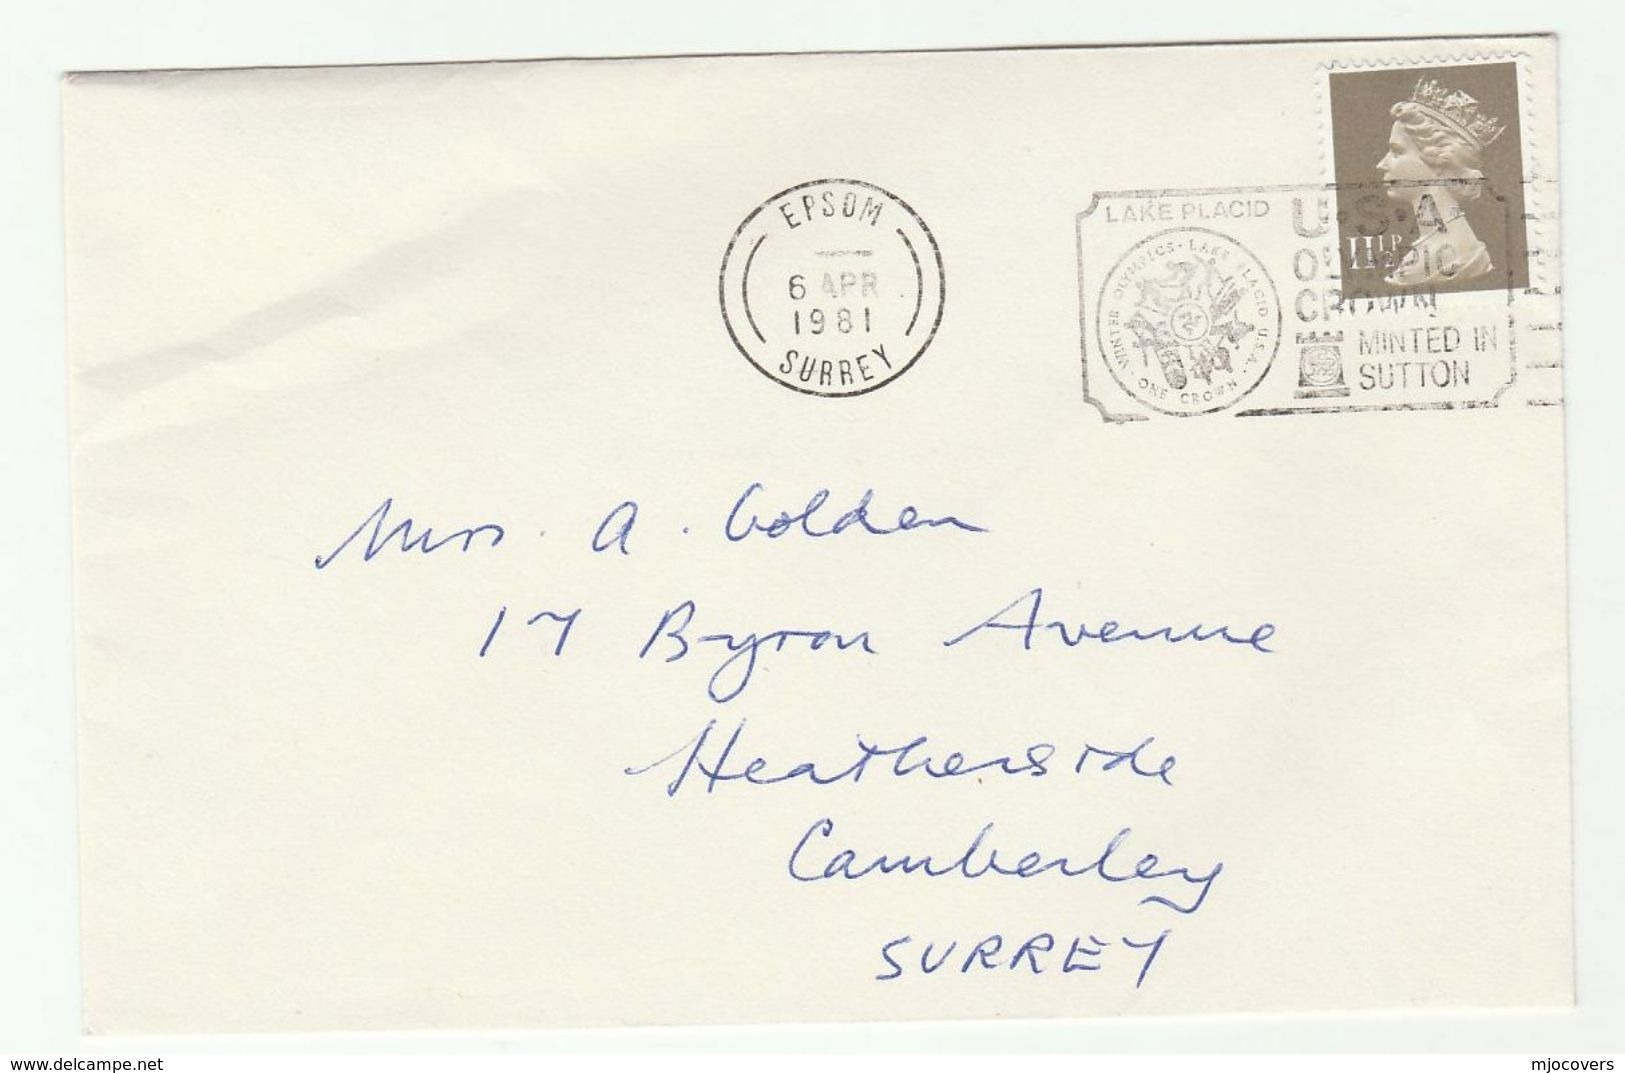 EPSOM
6 APR
1981
SURREY
LAKE PLACID
WINTER OLYMPICS · LAKE PLACID U.S.A. · ONE CROWN ·
U·S·A
OLYMPIC
CROWN
MINTED IN
SUTTON
11½P
Mrs. A. Golden
17 Byron Avenue
Heatherside
Camberley
SURREY
delcampe.net
mjocovers